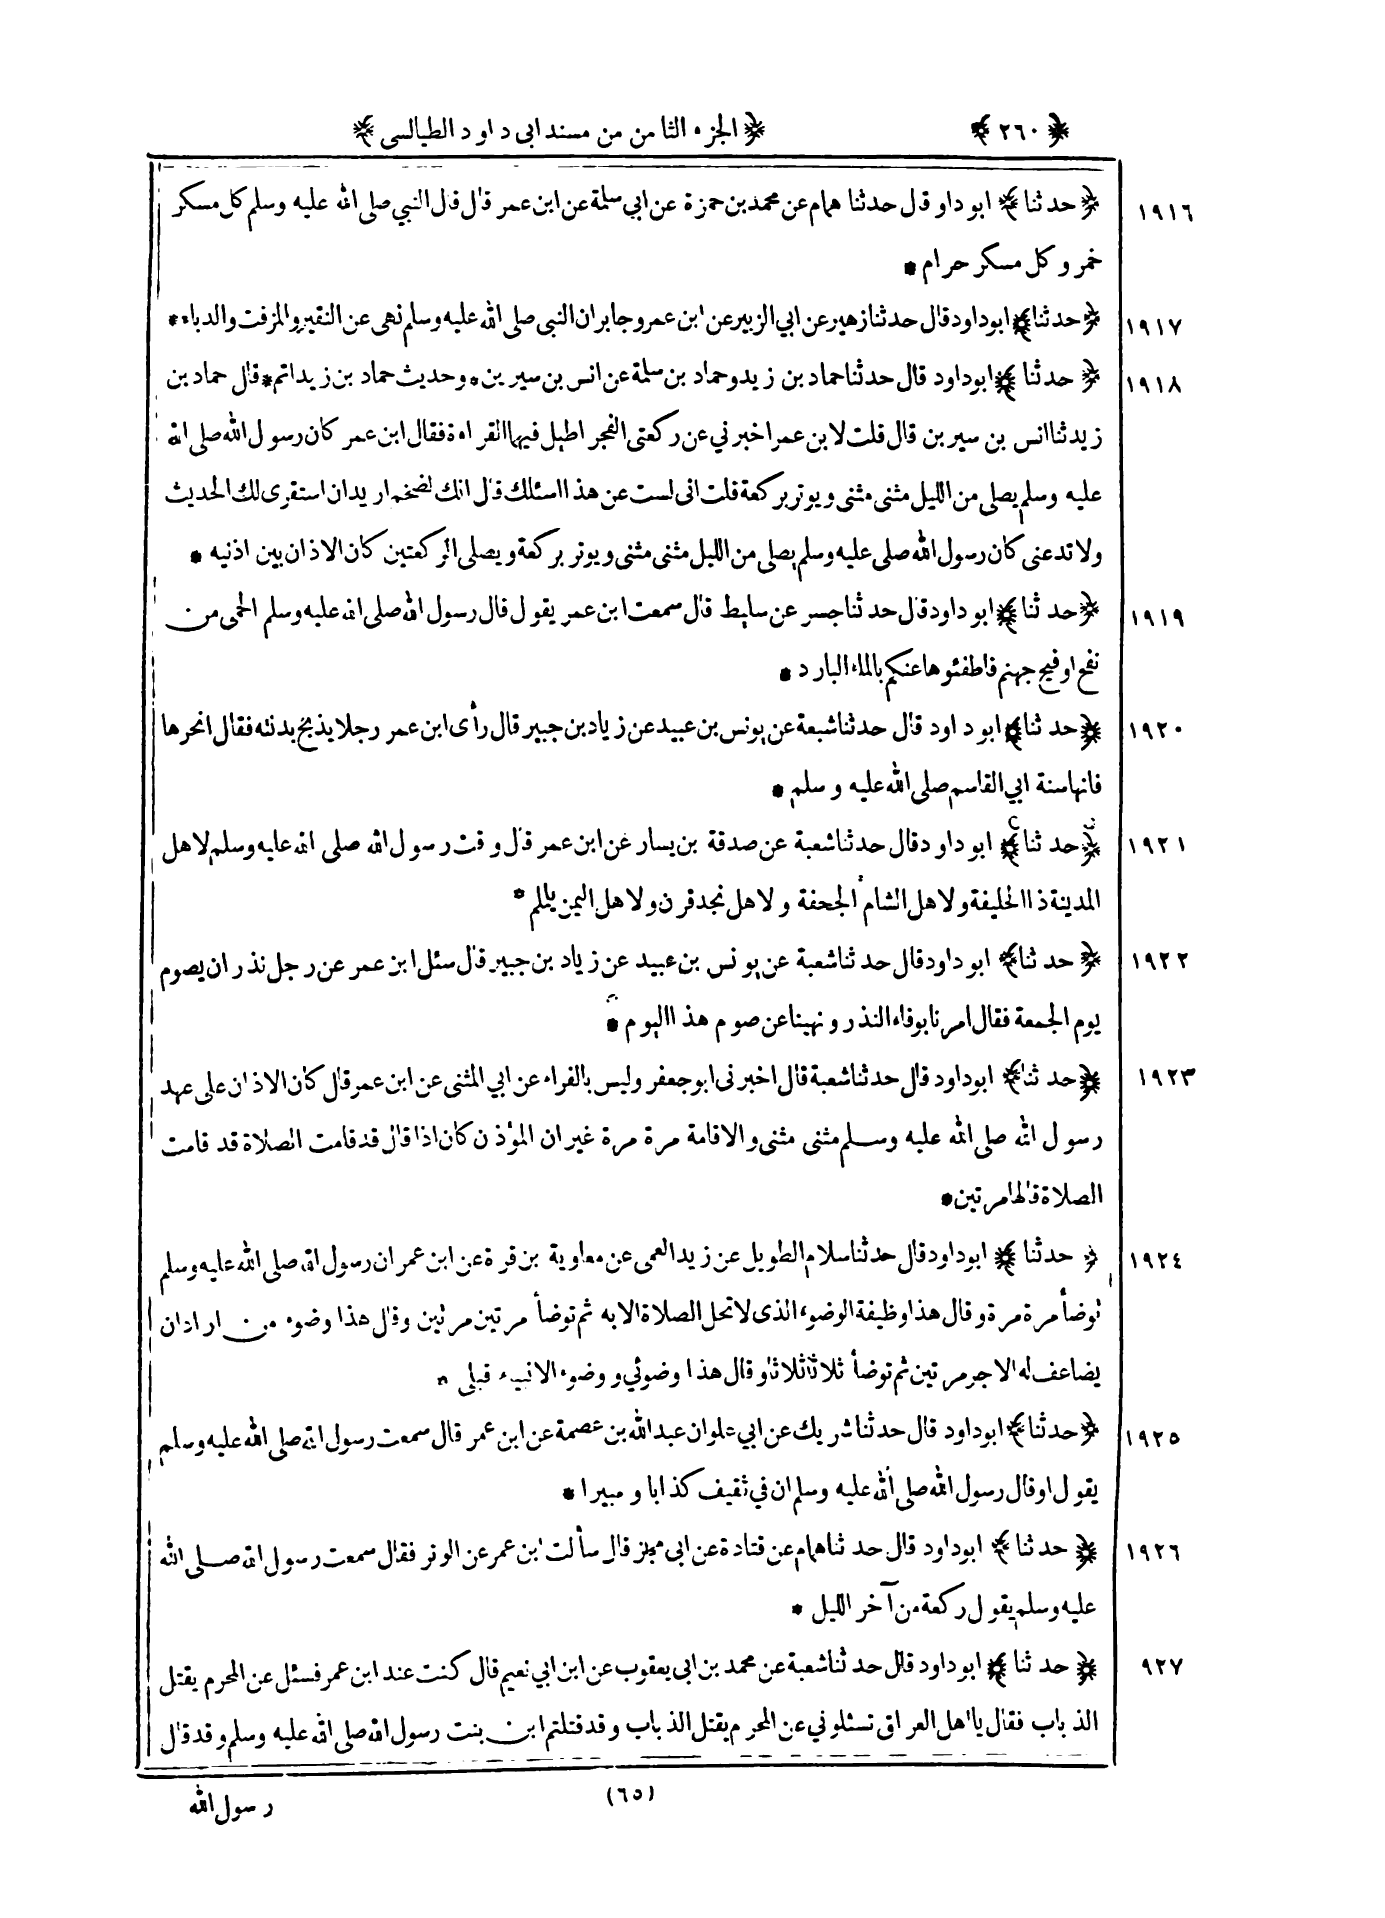 ﴿ ٢٦٠ ﴾ ﴿ الجزء الثامن من مسند ابى داود الطيالسى ﴾
١٩١٦ ﴿ حدثنا ﴾ ابو داو قال حدثنا همام عن محمد بن حمزة عن ابي سلمة عن ابن عمر قال قال النبي صلى الله عليه وسلم كل مسكر
خمر وكل مسكر حرام *
١٩١٧ ﴿ حدثنا ﴾ ابو داود قال حدثنا زهير عن ابي الزبير عن ابن عمر وجابر ان النبى صلى الله عليه وسلم نهى عن النقير والمزفت والدباء *
١٩١٨ ﴿ حدثنا ﴾ ابو داود قال حدثنا حماد بن زيد وحماد بن سلمة عن انس بن سيرين * وحديث حماد بن زيد اتم * قال حماد بن
زيد ثنا انس بن سيرين قال قلت لابن عمر اخبرني عن ركعتى الفجر اطيل فيهما القراءة فقال ابن عمر كان رسول الله صلى الله
عليه وسلم يصلى من الليل مثنى مثنى ويوتر بركعة قلت انى لست عن هذا اسئلك قال انك لضخم اريد ان استقرى لك الحديث
ولا تدعنى كان رسول الله صلى عليه وسلم يصلى من الليل مثنى مثنى ويوتر بركعة ويصلى الركعتين كان الاذان بين اذنيه *
١٩١٩ ﴿ حدثنا ﴾ ابو داود قال حدثنا جسر عن سليط قال سمعت ابن عمر يقول قال رسول الله صلى الله عليه وسلم الحمى من
نفح او فيح جهنم فاطفئوها عنكم بالماء البارد *
١٩٢٠ ﴿ حدثنا ﴾ ابو داود قال حدثنا شعبة عن يونس بن عبيد عن زياد بن جبير قال رأى ابن عمر رجلا يذبح بدنته فقال انحرها
فانها سنة ابي القاسم صلى الله عليه وسلم *
١٩٢١ ﴿ حدثنا ﴾ ابو داود قال حدثنا شعبة عن صدقة بن يسار عن ابن عمر قال وقت رسول الله صلى الله عليه وسلم لاهل
المدينة ذا الحليفة ولاهل الشام الجحفة ولاهل نجد قرن ولاهل اليمن يلملم *
١٩٢٢ ﴿ حدثنا ﴾ ابو داود قال حدثنا شعبة عن يونس بن عبيد عن زياد بن جبير قال سئل ابن عمر عن رجل نذر ان يصوم
يوم الجمعة فقال امرنا بوفاء النذر ونهينا عن صوم هذا اليوم *
١٩٢٣ ﴿ حدثنا ﴾ ابو داود قال حدثنا شعبة قال اخبرنى ابو جعفر وليس بالفراء عن ابي المثنى عن ابن عمر قال كان الاذان على عهد
رسول الله صلى الله عليه وسلم مثنى مثنى والاقامة مرة مرة غير ان المؤذن كان اذا قال قد قامت الصلاة قد قامت
الصلاة قالها مرتين *
١٩٢٤ ﴿ حدثنا ﴾ ابو داود قال حدثنا سلام الطويل عن زيد العمى عن معاوية بن قرة عن ابن عمر ان رسول الله صلى الله عليه وسلم
توضأ مرة مرة وقال هذا وظيفة الوضوء الذى لا تحل الصلاة الا به ثم توضأ مرتين مرتين وقال هذا وضوء من اراد ان
يضاعف له الاجر مرتين ثم توضأ ثلاثا ثلاثا وقال هذا وضوئي ووضوء الانبياء قبلى *
١٩٢٥ ﴿ حدثنا ﴾ ابو داود قال حدثنا شريك عن ابي علوان عبد الله بن عصمة عن ابن عمر قال سمعت رسول الله صلى الله عليه وسلم
يقول او قال رسول الله صلى الله عليه وسلم ان في ثقيف كذابا ومبيرا *
١٩٢٦ ﴿ حدثنا ﴾ ابو داود قال حدثنا همام عن قتادة عن ابى مجلز قال سألت ابن عمر عن الوتر فقال سمعت رسول الله صلى الله
عليه وسلم يقول ركعة من آخر الليل *
٩٢٧ ﴿ حدثنا ﴾ ابو داود قال حدثنا شعبة عن محمد بن ابى يعقوب عن ابن ابي نعيم قال كنت عند ابن عمر فسئل عن المحرم يقتل
الذباب فقال يا اهل العراق تسئلوني عن المحرم يقتل الذباب وقد قتلتم ابن بنت رسول الله صلى الله عليه وسلم وقد قال
(٦٥)
رسول الله